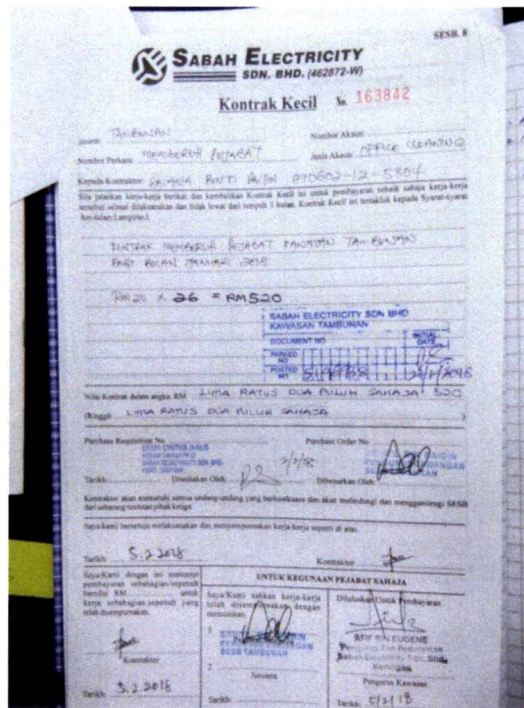 SESB. 8
SABAH ELECTRICITY
SDN. BHD. (462872-W)
Kontrak Kecil No. 163842
TAMBUNAN Nombor Akaun
Nombor Perkara MEMBERSIH PEJABAT Jenis Akaun OFFICE CLEANING
Kepada Kontraktor BINTI
Sila jalankan kerja-kerja berikut dan kembalikan Kontrak Kecil ini untuk pembayaran sebaik sahaja kerja-kerja
tersebut selesai dilaksanakan dan tidak lewat dari tempoh 3 bulan. Kontrak Kecil ini tertakluk kepada Syarat-syarat
KONTRAK MEMBERSIH PEJABAT KAWASAN TAMBUNAN
BAGI BULAN JANUARI 2018
RM 20 X 26 = RM520
SABAH ELECTRICITY SDN BHD
KAWASAN TAMBUNAN
DOCUMENT NO INITIAL
DATE
PARKED
NO
POSTED
NO
Nilai Kontrak dalam angka RM LIMA RATUS DUA PULUH SAHAJA 520
(Ringgit LIMA RATUS DUA PULUH SAHAJA )
Purchase Requisition No Purchase Order No
2/2/18
Tarikh Disediakan Oleh Dibenarkan Oleh
Kontraktor akan mematuhi semua undang-undang yang berkuatkuasa dan akan melindungi dan mengganturugi SESB
dari sebarang tuntutan pihak ketiga.
Saya/kami bersetuju melaksanakan dan menyempurnakan kerja-kerja seperti di atas.
Tarikh 5.2.2018 Kontraktor
Saya/Kami dengan ini menuntut
pembayaran sebahagian/sepenuh
bernilai RM untuk
kerja sebahagian/sepenuh yang
telah disempurnakan.
Kontraktor
Tarikh: 5.2.2018
UNTUK KEGUNAAN PEJABAT SAHAJA
Saya/Kami sahkan kerja-kerja
telah disempurnakan dengan
memuaskan.
1.
SESB TAMBUNAN
2.
Jurutera
Tarikh:
Diluluskan Untuk Pembayaran
EUGENE
Pengurus Zon Pedalaman
Sabah Electricity Sdn. Bhd.
Keningau
Pengurus Kawasan
Tarikh: 5/2/18